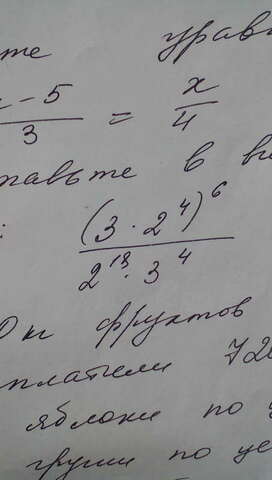 те урав
x - 5 / 3 = x / 4
тавьте в ви
(3 · 2^4)^6 / 2^13 · 3^4
0 кг фруктов
платили 720
яблоки по ц
груши по це